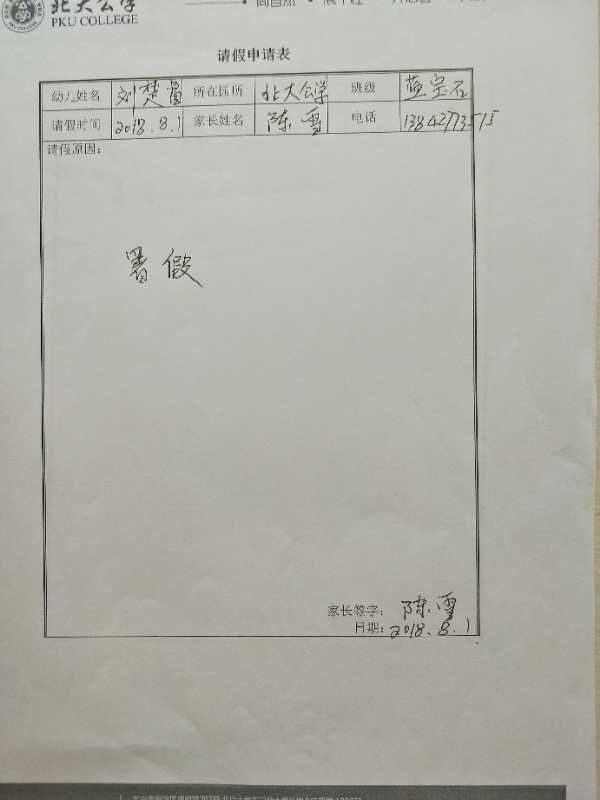 北大公学
PKU COLLEGE
请假申请表
幼儿姓名 刘楚 所在园所 北大公学 班级 蓝宝石
请假时间 2018.8.1 家长姓名 陈雪 电话 13842773515
请假原因:
署假
家长签字: 陈雪
日期: 2018.8.1